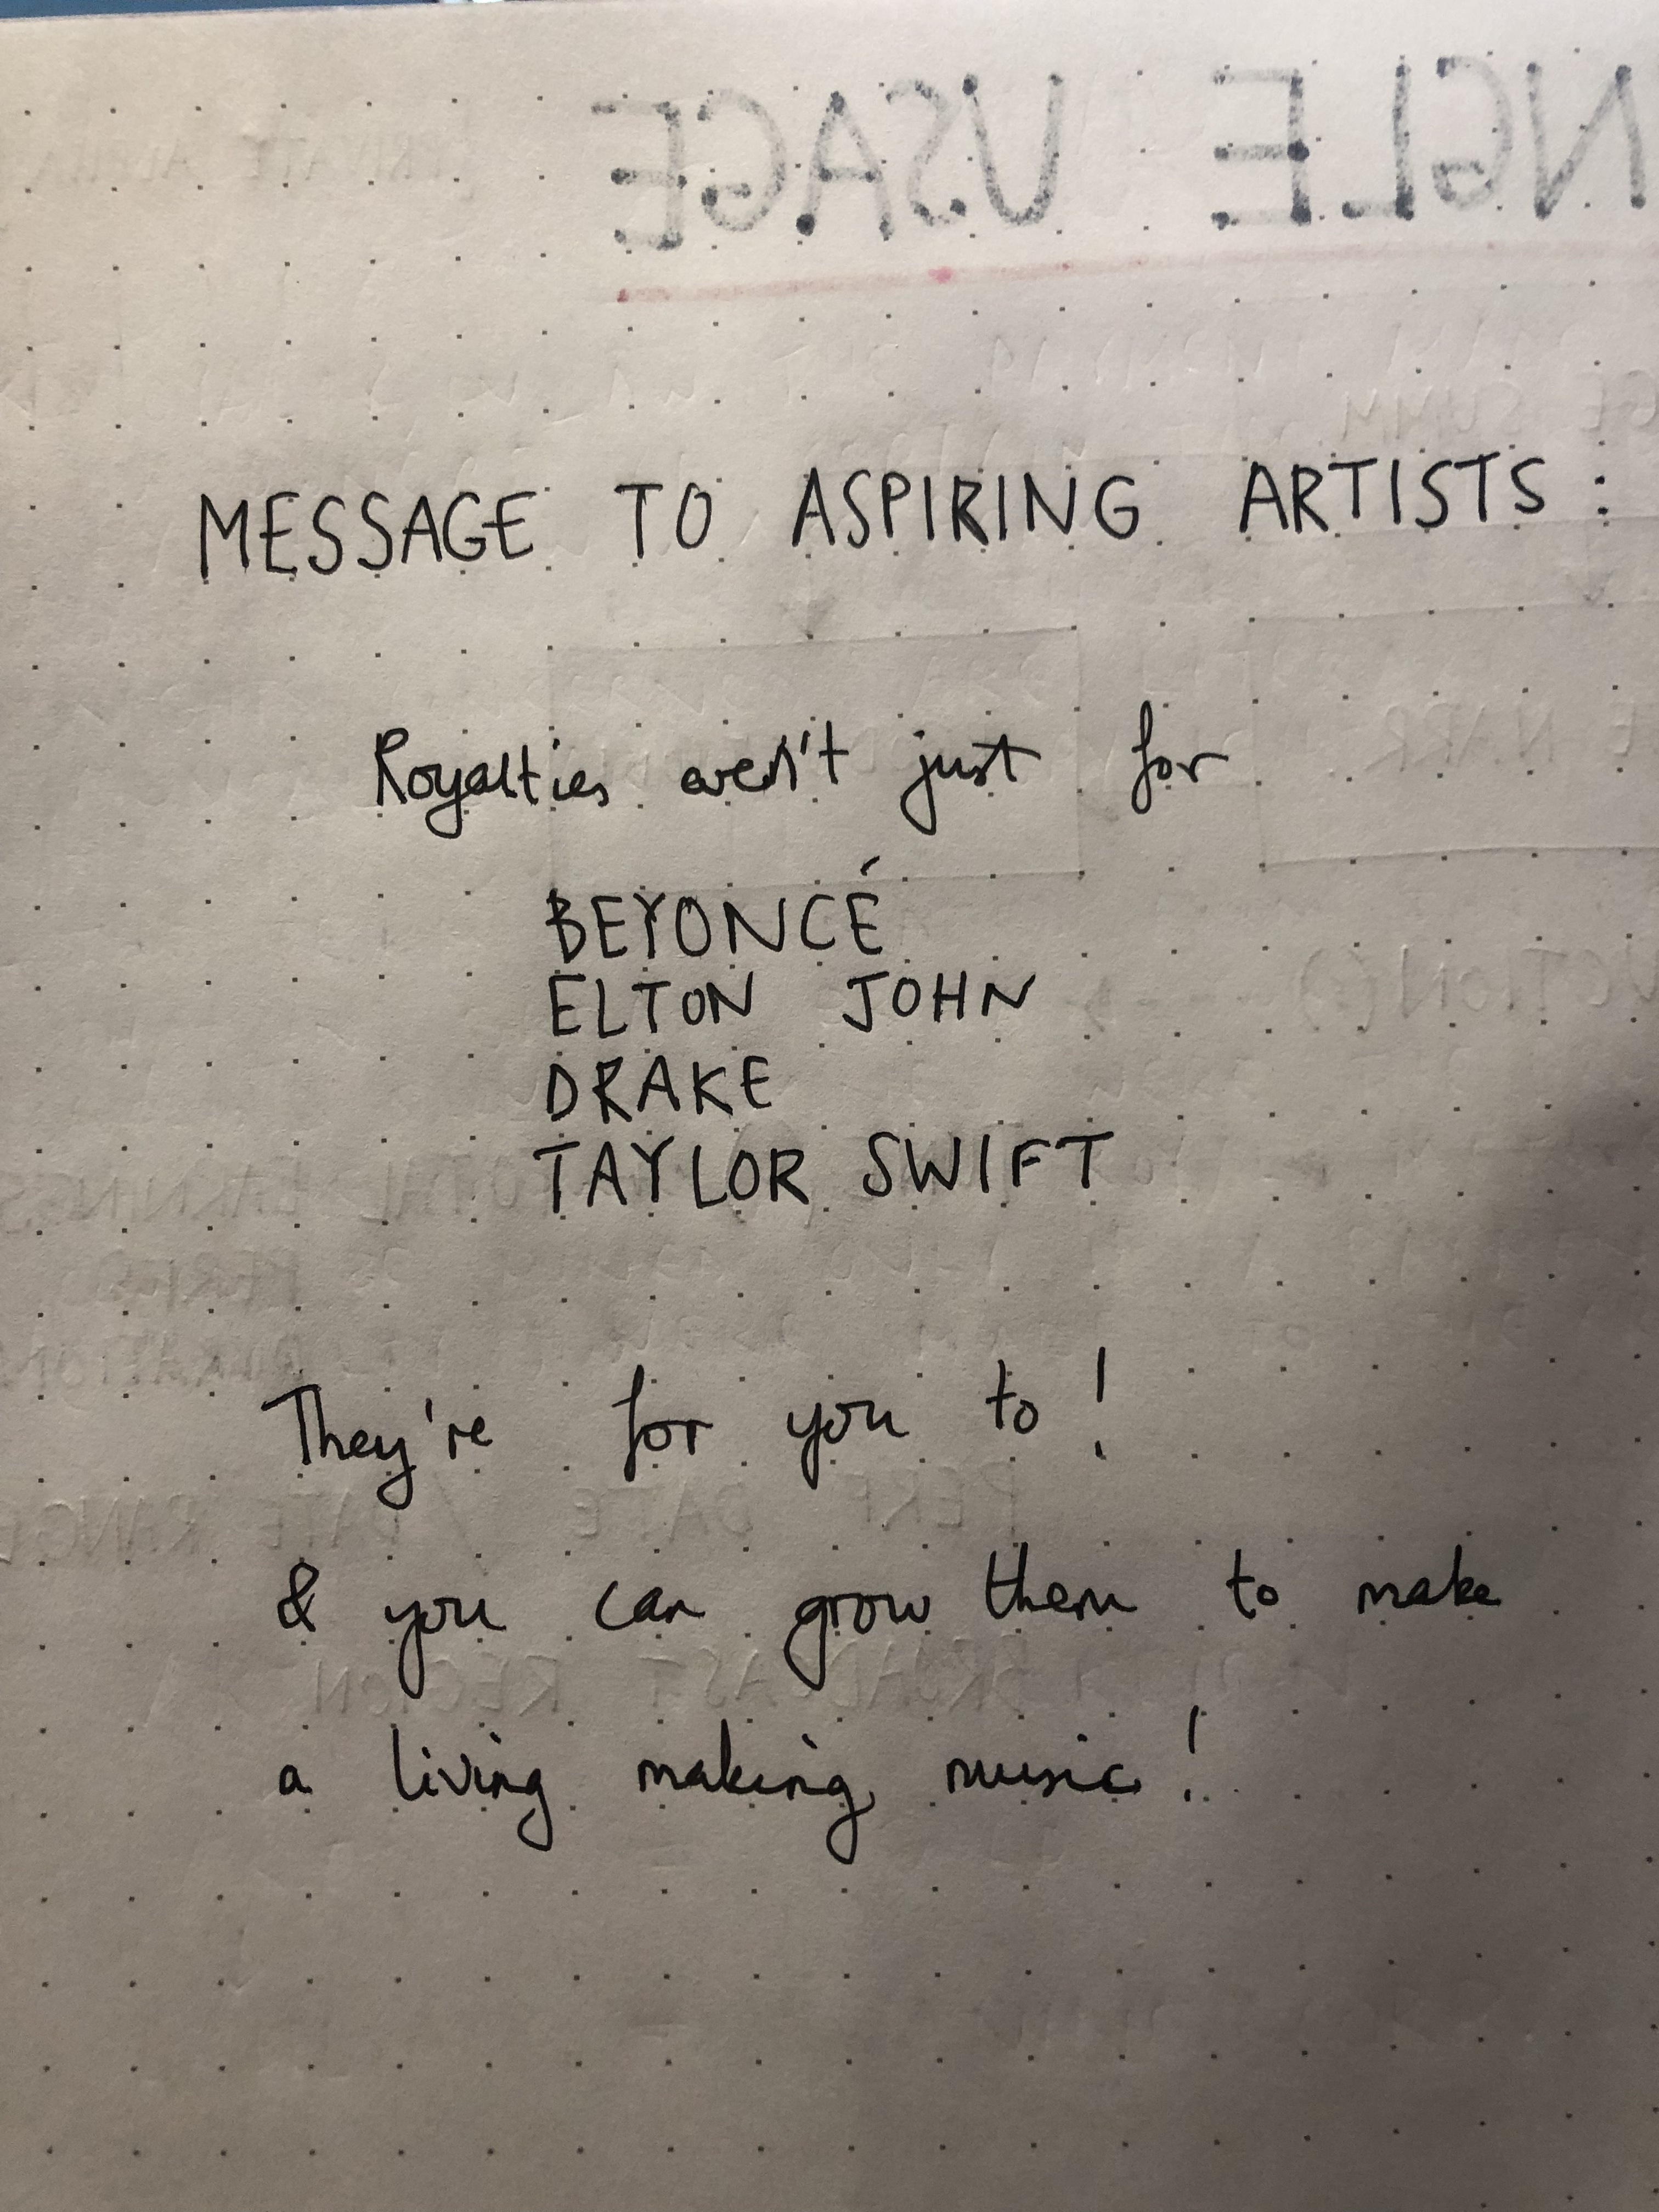 NGLE USAGE
MESSAGE TO ASPIRING ARTISTS:
Royalties aren't just for
BEYONCÉ
ELTON JOHN
DRAKE
TAYLOR SWIFT
They're for you to!
& you can grow them to make
a living making music!